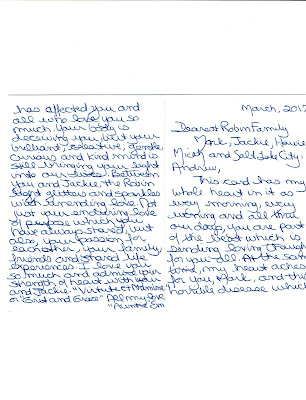 March, 2017
Dearest Robin Family
Mark, Jackie, Howie
Micah and Salt Lake City
Andrew,
This card has my
whole heart in it as
every morning, every
evening and all that
day, you are part
of the
sending loving thoughts
for you all. At the same
time, my heart aches
for you, Mark, and this
horrible disease which
has affected you and
all who love you so
much. Your body is
deceiving you but your
brilliant, creative, gentle,
curious and kind mind is
still bringing your light
into our lives. Between
you and Jackie, the Robin
light glitters and sparkles
with unending love. Not
just your enduring love
of purpose which you
have always shared, but
also, your passion for
each other, your family,
friends and shared life
experiences. I love you
so much and admire your
strength of heart with you
and Jackie. "Virtute et
or "Grid and Grace" All my love
Auntie Em